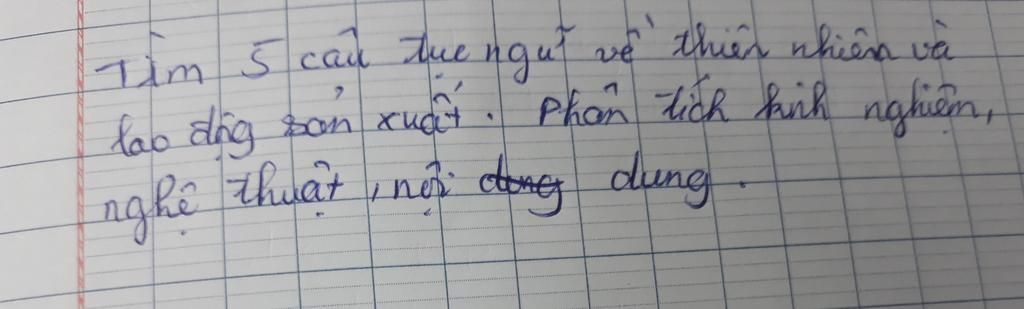 Tìm 5 câu tục ngữ về thiên nhiên và
lao động sản xuất. Phân tích kinh nghiệm,
nghệ thuật, nội dung.